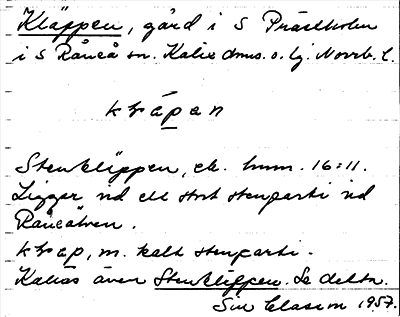 Kläppen, gård i S Prästholm
i S Råneå sn. Kalix dms. o. lg. Norrb. l.
Stenkläppen, ek. hmn. 16:11.
Ligger vid ett stort stenparti vid
Råneälven.
m. kalt stenparti.
Kallas även Stenkläppen. Se detta.
1957.